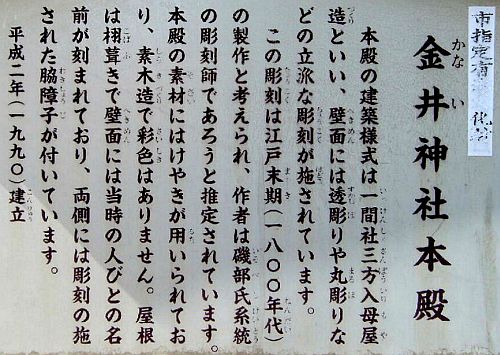 市指定有 化
金井神社本殿
かな い
本殿の建築様式は一間社三方入母屋
造といい、壁面には透彫りや丸彫りな
どの立派な彫刻が施されています。
この彫刻は江戸末期（一八〇〇年代）
の製作と考えられ、作者は磯部氏系統
の彫刻師であろうと推定されています。
本殿の素材にはけやきが用いられてお
り、素木造で彩色はありません。屋根
は栩葺きで壁面には当時の人びとの名
前が刻まれており、両側には彫刻の施
された脇障子が付いています。
平成二年（一九九〇）建立